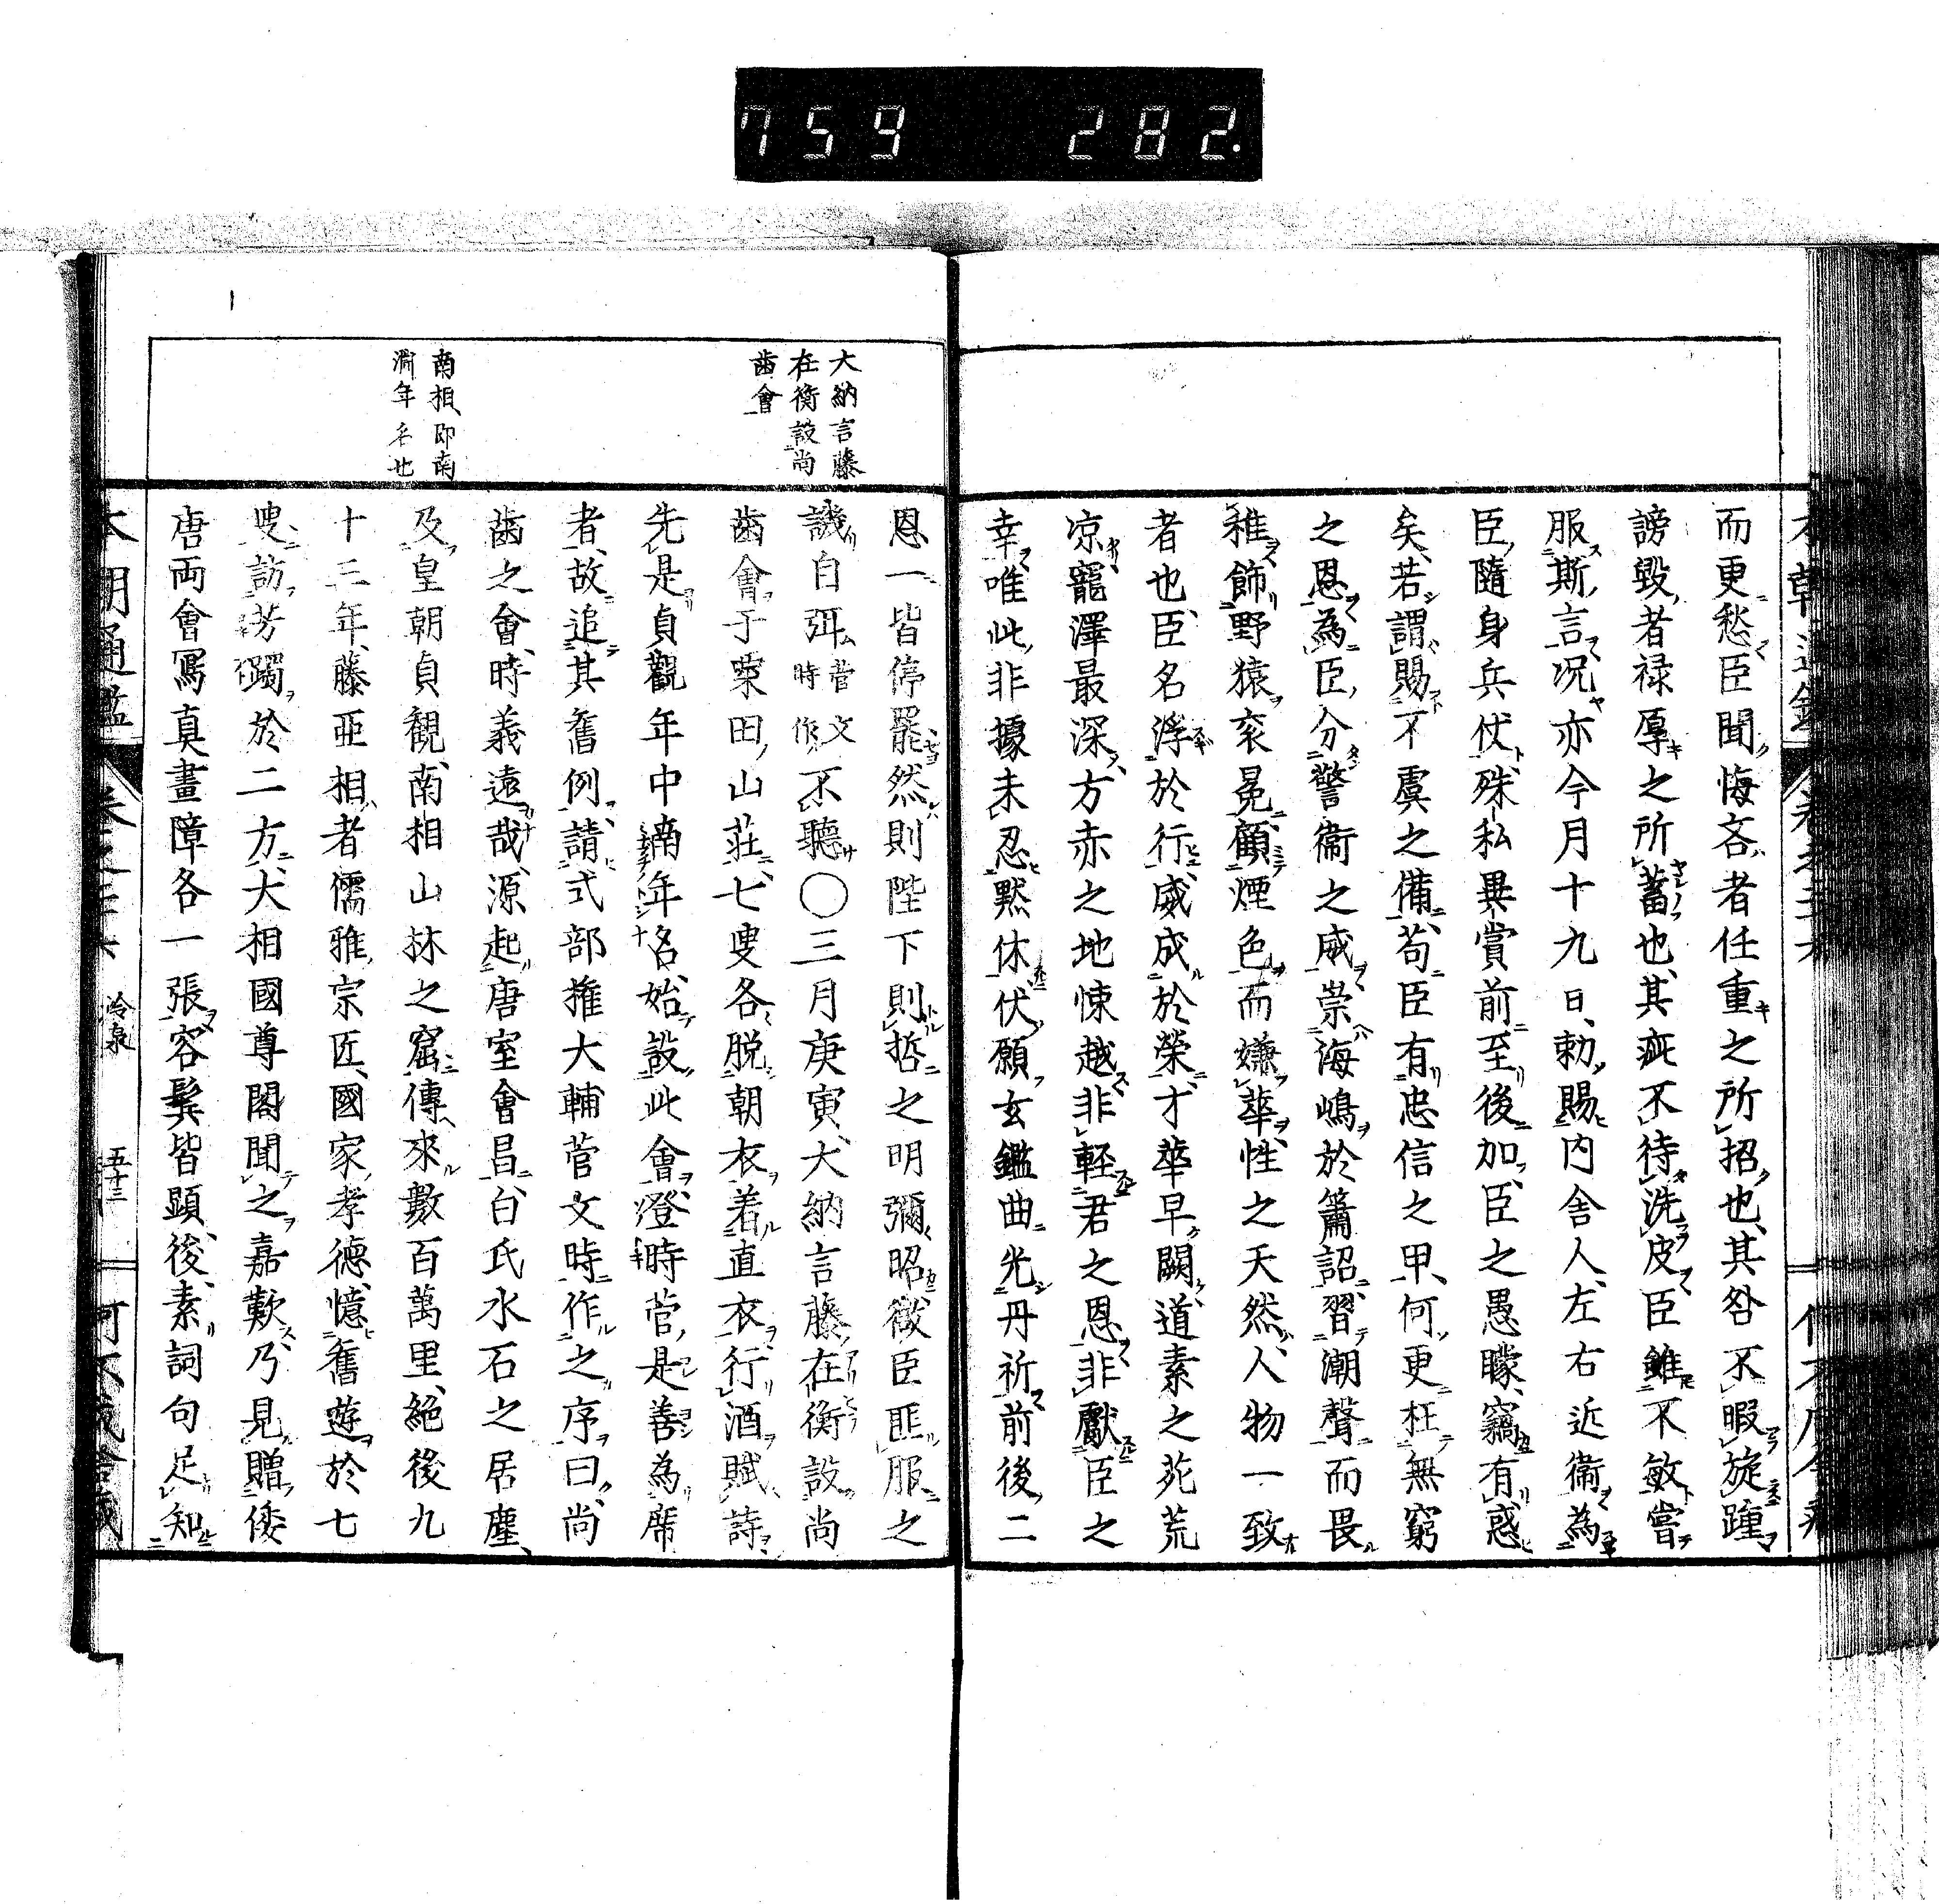 759 282.
而更愁臣聞悔吝者任重之所招也其咎不暇旋踵
謗毀者禄厚之所蓄也其疵不待洗皮臣雖不敏嘗
服斯言况亦今月十九日勅賜内舎人左右近衞為
臣隨身兵仗殊私畢賞前至後加臣之愚矇竊有惑
矣若謂賜不虞之備苟臣有忠信之甲何更枉無窮
之恩為臣分警衞之威崇海嶋於簫詔習潮聲而畏
稚飾野猿衮冕顧煙色而嫌華性之天然人物一致
者也臣名浮於行威成於榮才華早闕道素之苑荒
凉寵澤最深方赤之地悚越非軽君之恩非獻臣之
幸唯此非據未忍黙休伏願玄鑑曲光丹祈前後二
大納言藤
在衡設尚
齒會
南相即南
淵年名也
恩一皆停罷然則陛下則哲之明彌昭微臣匪服之
譏自弭菅文時作不聽〇三月庚寅大納言藤在衡設尚
齒會于粟田山荘七叟各脱朝衣着直衣行酒賦詩
先是貞觀年中南年名始設此會澄時菅是善為席
者故追其舊例請式部推大輔菅文時作之序曰尚
齒之會時義遠哉源起唐室會昌白氏水石之居塵
及皇朝貞觀南相山林之窟傳來數百萬里絶後九
十三年藤亞相者儒雅宗匠國家孝德憶舊遊於七
叟訪芳躅於二方大相國尊閣聞之嘉歎乃見贈倭
唐両會寫真畫障各一張容鬂皆顯後素詞句足知
本朝通鑑 冷泉 五十三